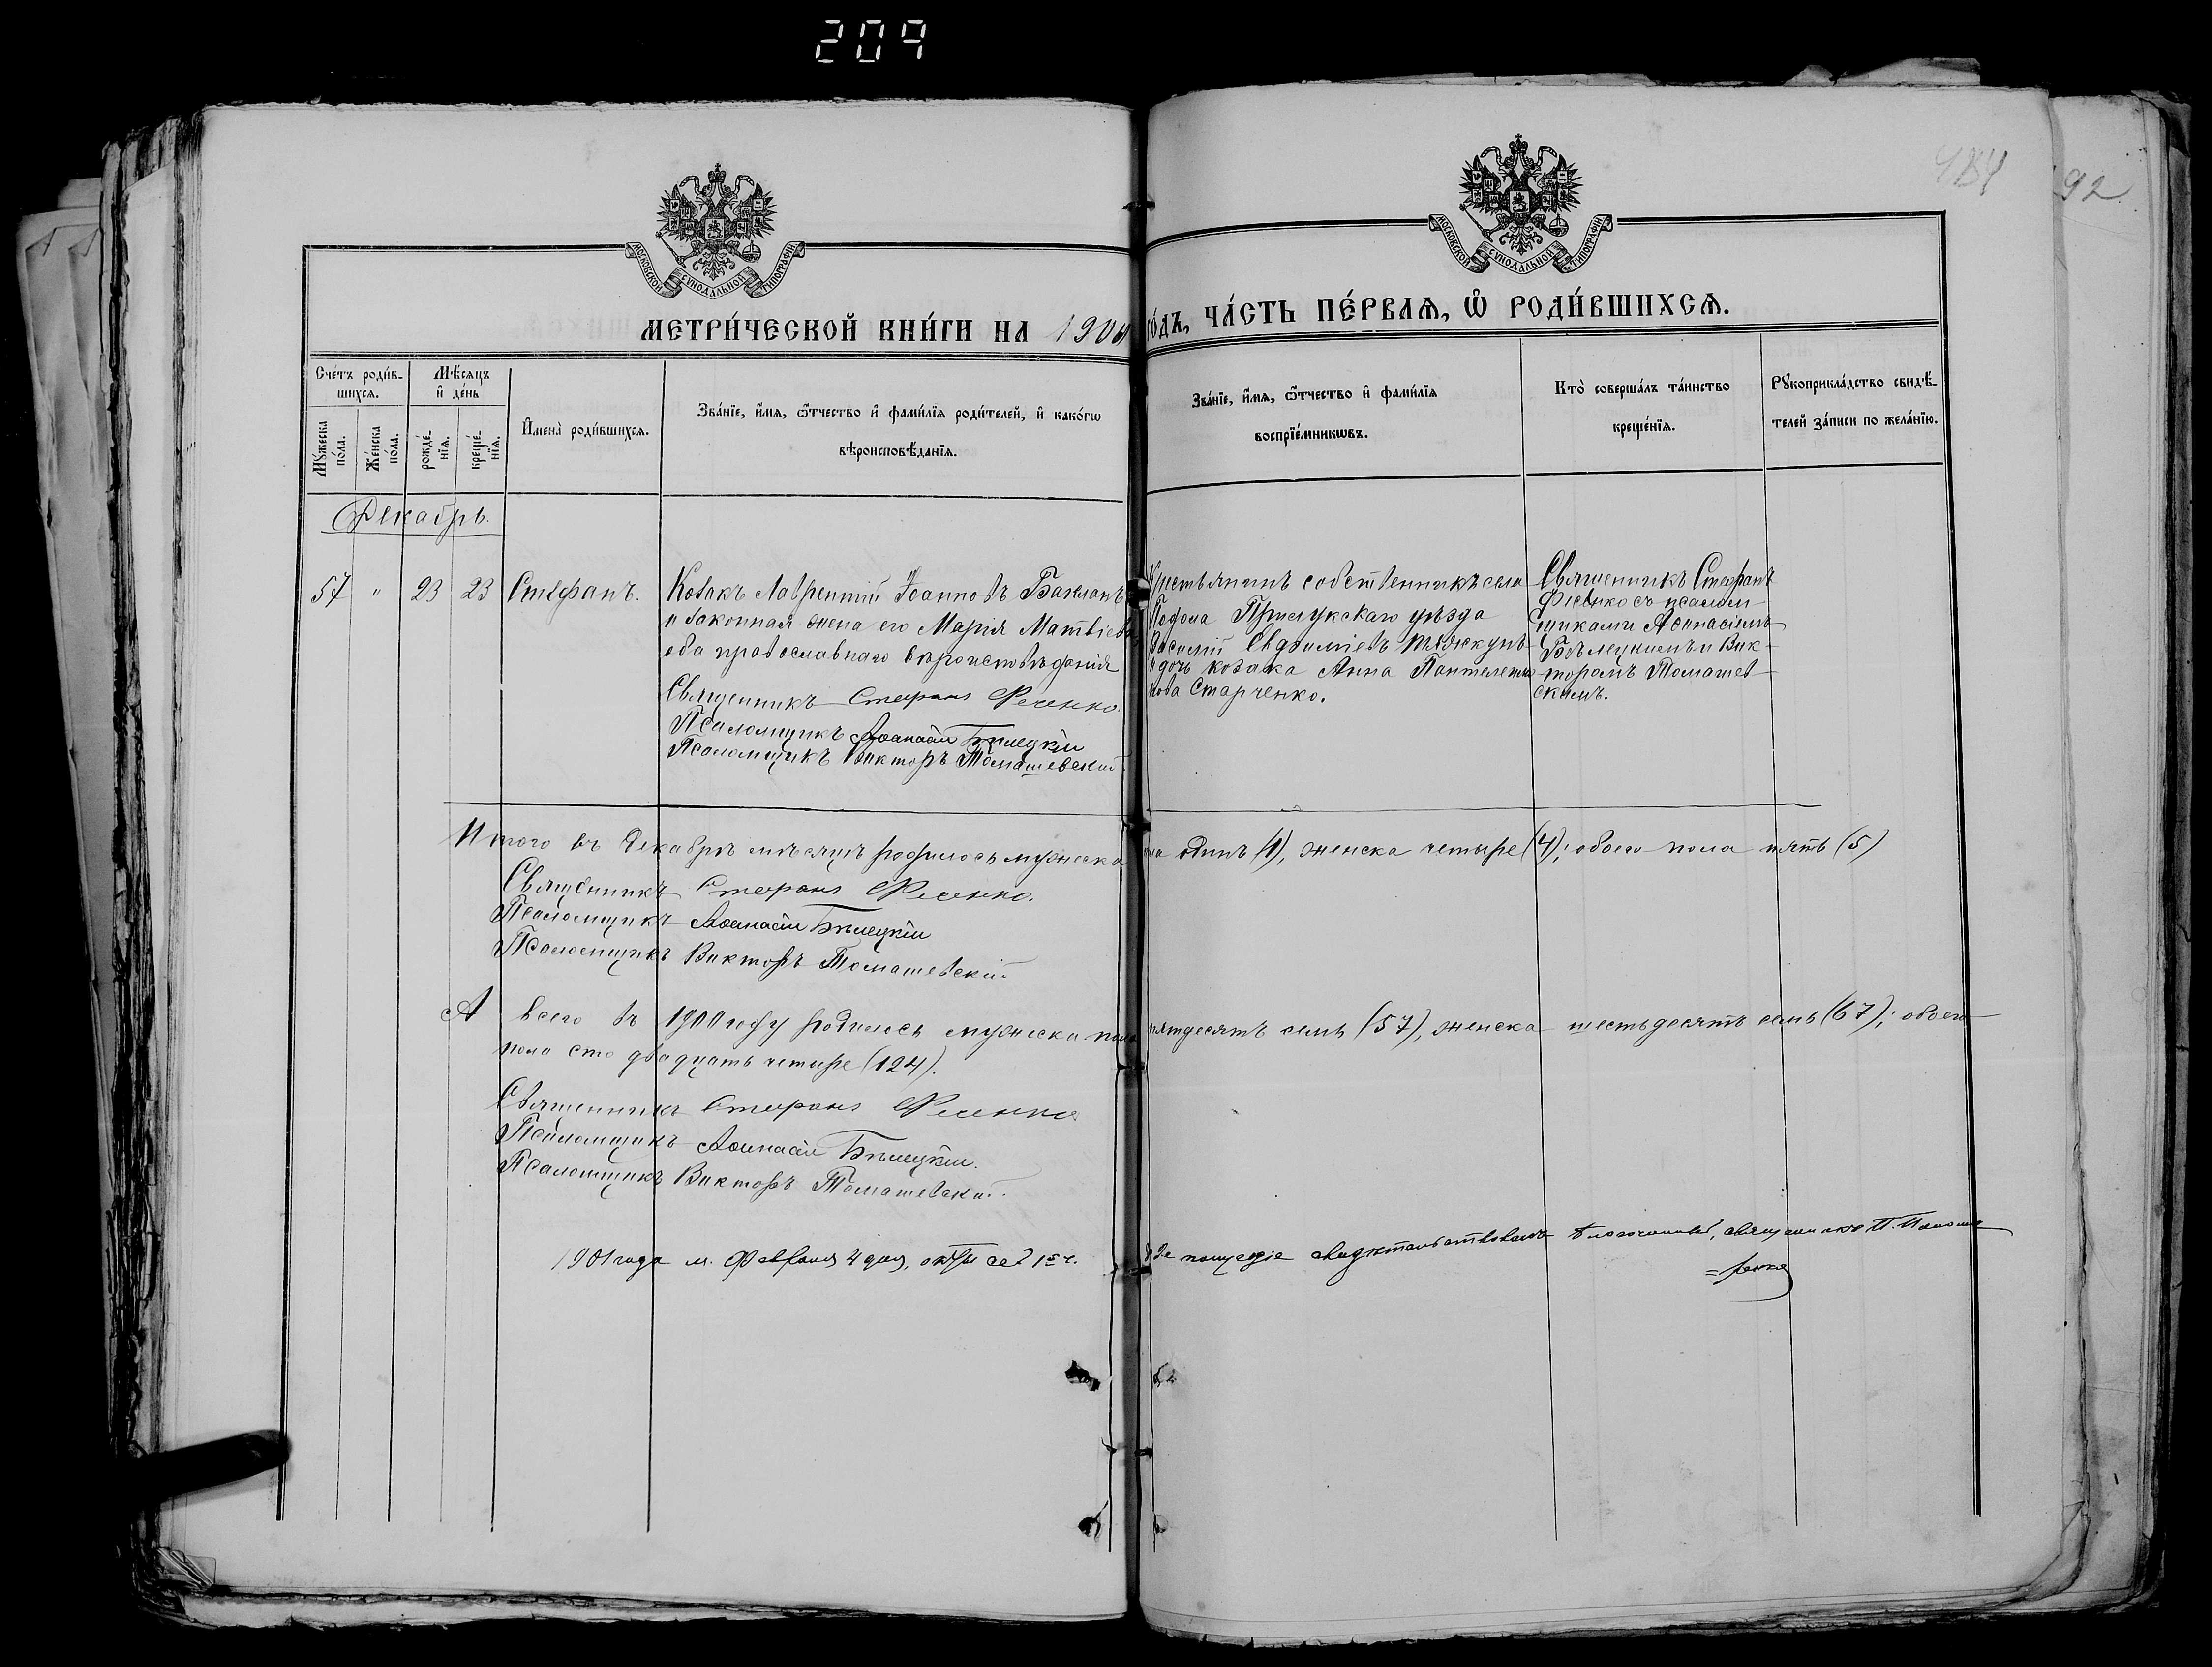 209
484
92
МОСКОВСКОЙ СУНОДАЛЬНОЙ ТИПОГРАФІИ
МОСКОВСКОЙ СУНОДАЛЬНОЙ ТИПОГРАФІИ
МЕТРИ́ЧЕСКОЙ КНИ́ГИ НА 1900 го́дъ, ЧА́СТЬ ПЕ́РВАѦ, Ѡ҆ РОДИ́ВШИХСѦ.
Сче́тъ роди́в-
шихсѧ.
Мꙋ́жеска по́ла.
Же́нска по́ла.
Мѣ́сѧцъ
и҆ де́нь
рожде́-
нїѧ.
креще́-
нїѧ.
И҆мена̀ роди́вшихсѧ.
Зва́нїе, и҆́мѧ, ѻ҆́тчество и҆ фами́лїѧ роди́телей, и҆ како́гѡ
вѣроисповѣ́данїѧ.
Зва́нїе, и҆́мѧ, ѻ҆́тчество и҆ фами́лїѧ
воспрїе́мникѡвъ.
Кто̀ соверша́лъ та́инство
креще́нїѧ.
Рꙋкоприкла́дство свидѣ́-
телей за́писи по жела́нїю.
Декабрь.
57 " 23 23 Стефанъ.
Козакъ Лаврентій Іоанновъ Бакланъ
и законная жена его Марія Матвіева
оба православнаго вѣроисповѣданія
Священникъ Стефанъ Фесенко.
Псаломщикъ Аѳанасій Бѣлецкій
Псаломщикъ Викторъ Томашевскій.
Крестьянинъ собственникъ села
Подола Прилукскаго уѣзда
Василій Евдокиміевъ
и дочь козака Анна Пантелеимо-
нова Старченко.
Священникъ Стефанъ
Фесенко съ псалом-
щиками Аѳанасіемъ
Бѣлецкимъ и Вик-
торомъ Томашев-
скимъ.
Итого въ Декабрѣ мѣсяцѣ родилось мужеска пола одинъ (1), женска четыре (4); обоего пола пять (5)
Священникъ Стефанъ Фесенко.
Псаломщикъ Аѳанасій Бѣлецкій
Псаломщикъ Викторъ Томашевскій.
А всего въ 1900 году родилось мужеска пола пятдесятъ семь (57), женска шестьдесятъ семь (67); обоего
пола сто двадцать четыре (124).
Священникъ Стефанъ Фесенко
Псаломщикъ Аѳанасій Бѣлецкій.
Псаломщикъ Викторъ Томашевскій.
1901 года м. Февраля 4 дня, свидѣтельствовалъ благочинный, священникъ П.